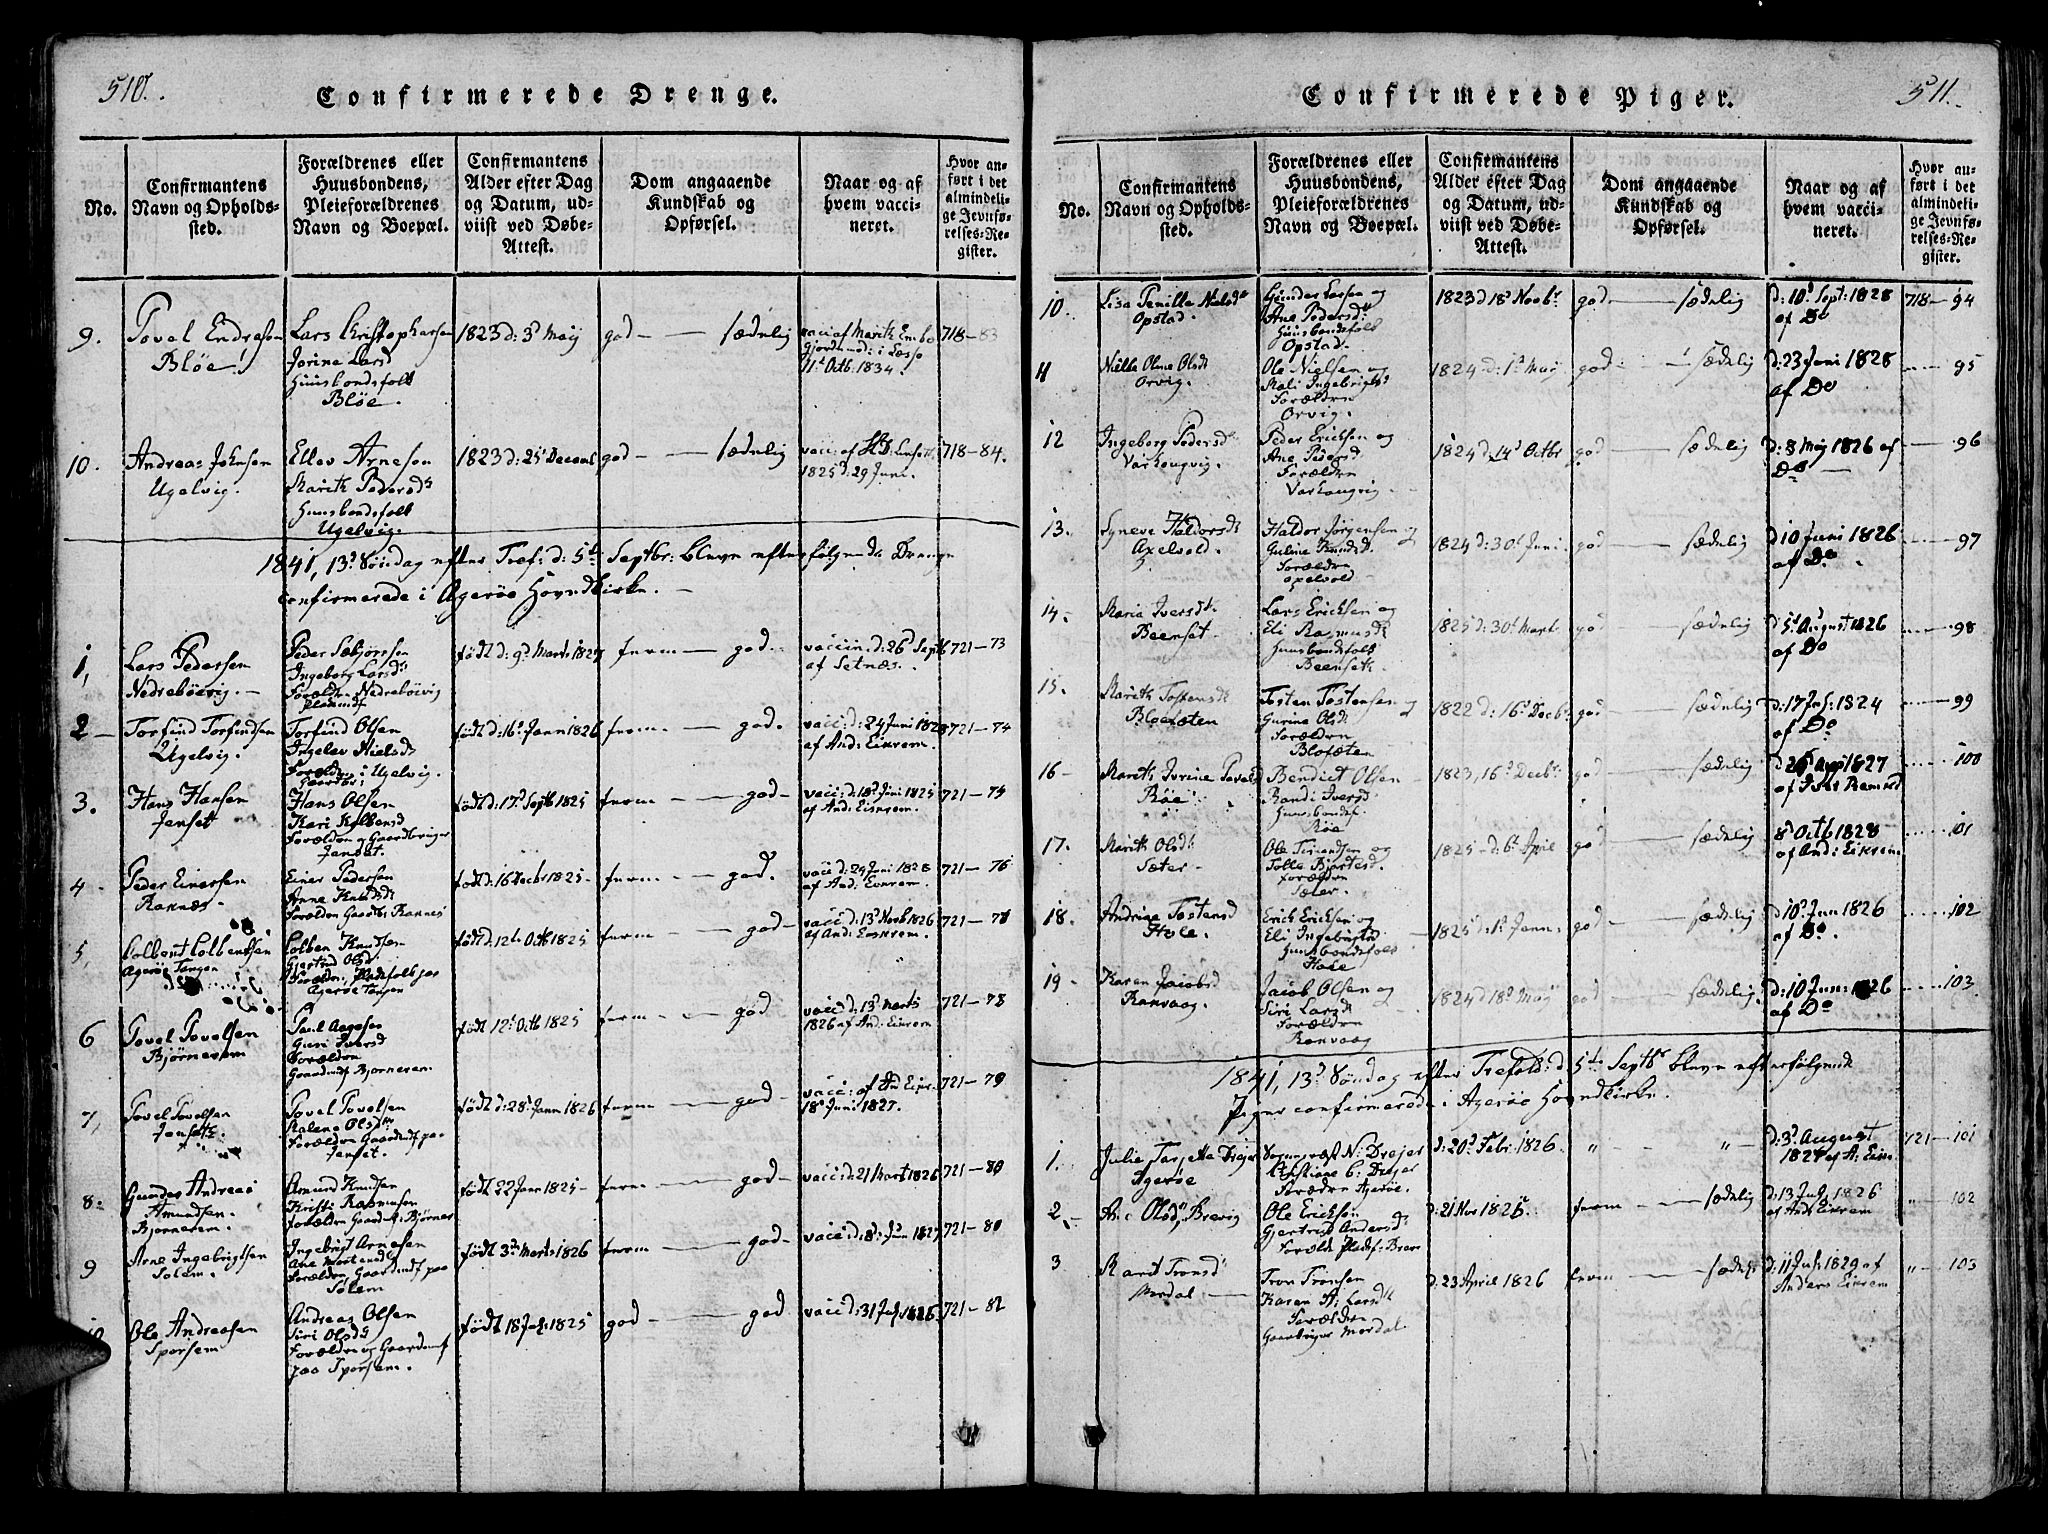 510.
Confirmerede Drenge.
No.
Confirmantens Navn og Opholds-sted.
Forældrenes eller Huusbondens, Pleieforældrenes Navn og Boepæl.
Confirmantens Alder efter Dag og Datum, ud-viist ved Døbe-Attest.
Dom angaaende Kundskab og Opførsel.
Naar og af hvem vacci-neret.
Hvor an-ført i det almindeli-ge Jevnfø-relses-Re-gister.
9.
Povel Endresen
Bløe
Lars Kristophersen
Jorine Larsd
Huusbondsfolk
Bløe.
1823 d: 3d Maij
god — — sædelig
vacc af Marith
11t Octb. 1834.
718-83
10.
Andreas Johnsen
Ugelvig.
Ellev Arnesen
Marith Pedersd
Huusbondsfolk
Ugelvig.
1823 d: 25d Decemb
god — — sædelig
vacc: af
1825 d. 29 Juni.
718-84.
1841, 13d Søndag efter Tref: d: 5te Septbr: bleve efterfølgende Drenge
confirmerede i Agerøe Hovedkirke. —
1,
Lars Pedersen
Nedrebøevig. —
Peder
Ingeborg Larsd
Forældre Nedrebøevig
født d: 9d Marts 1827
ferm — god
vaccin. d. 26 Septb
af Setnæs.
721-73
2 —
Torfind Torfindsen
Ugelvig.
Torfind Olsen
Ingelev Nielsd
Forældre i Ugelvig.
født d: 16d Jann 1826
ferm — — god.
vacc: d: 24 Juni 1828
af And: Eikrem.
721-74
3.
Hans Hansen
Jenset
Hans Olsen
Kari Kolbensd
Forældre og Gaardbruger
Jenset.
født d: 17d Septb 1825
ferm — — god
vacc: d: 10d Juni 1825
af And: Eikrem.
721-75
4 —
Peder Einersen
Raknæs.
Einer Pedersen
Anne Knudsd
Forældre Gaardbr Raknes
født d: 16 Decbr 1825
ferm — — god.
vacc d: 24 Juni 1828
af And: Eikrem.
721-76
5,
Colbent Colbentsen
Agerøe Tangen
Colben Knudsen
Gjertrud Olsd
Forældre, Pladsfolk paa
Agerøe Tangen
født d: 12te Octb 1825
ferm — — god
vacc d: 13d Novb 1826
af And: Eikrem.
721-77
6
Povel Povelsen
Bjørnerem
Poul Aagesen
Guri Iversd
Forældre
Gaardmdf Bjørnerem.
født 12t Octb 1825
ferm — — god
vacc d. 13d Marts
1826 af And: Eikrem
721-78
7,
Povel Povelsen
Jenseth
Povel Povelsen
Malene Olsd
Forældre Gaardmdf paa
Jenset.
født d: 28d Jann 1826
ferm — — god
vacc: af And Eikr.
18d Juni 1827.
721-79
8.
Gunder Andreas
Amundsen.
Bjørnerem.
Amund Knudsen
Kristi Rasmusen
Forældre Gaardmdf: Bjørner
født 22 Jann 1825
ferm — — god
vacc: d. 21 Mart 1826
721-80
9
Arne Ingebrigtsen
Solem.
Ingebrigt Arnesen
Ane Mortensd
Forældre Gaardmdf paa
Solem
født 3de Marts 1826
ferm — — god
vacc: d: 8d Jun 1827
721-80
10
Ole Andreasen
Sporsem
Andreas Olsen
Siri Olsd
Forældre og Gaardmdf
paa Sporsem.
født 18 Jul: 1825
god — — god
vacc: d: 31 Jul: 1826
721-82
511.
Confirmerede Piger.
No.
Confirmantens Navn og Opholds-sted.
Forældrenes eller Huusbondens, Pleieforældrenes Navn og Boepæl.
Confirmantens Alder efter Dag og Datum, ud-viist ved Døbe-Attest.
Dom angaaende Kundskab og Opførsel.
Naar og af hvem vacci-neret.
Hvor an-ført i det almindeli-ge Jevnfø-relses-Re-gister.
10.
Lisa Pernilla Nielsd
Opstad.
Gunder Larsen og
Ane Pedersd:
Huusbondsfolk
Opstad.
1823 d 18d Novbr
god — — sædelig
d: 10d Sept: 1828
af Do
718-94
11
Nille Oline Olsd
Orvig.
Ole Nielsen og
Mali Ingebrigtsd
Forældre
Orvig.
1824 d: 1d Maij
god — sædelig
d: 23 Juni 1828
af Do
— 95
12
Ingeborg Pedersd
Peder Ericksen og
Ane Pedersd
Forældre
1824 d. 14d Octbr
god — sædelig
d: 8 Maij 1826 af
Do —
— 96
13.
Synneve Haldorsd
Axelvold.
Haldor Jørgensen og
Guline Knudsd.
Forældre
Axelvold
1824 d: 30t Juni
god — sædelig
d 10 Juni 1826
af Do.
— 97
14.
Maria Iversd
Beenset
Lars Ericksen og
Eli Rasmusd
Huusbondsfolk
Beenseth
1825 d: 30t Marts
god — sædelig
d 5t August 1826
af Do
— 98
15.
Marith Tostensd
Tosten Tostensen og
Gurine Olsd
Forældre
1822 d: 16d Decbr
god — sædelig
d: 17 Jul: 1824
af Do
— 99
16 —
Marith Jorine Povelsd
Røe
Bendict Olsen
Randi Iversd
Huusbondsf.
Røe
1823, 16d Decbr
god — sædelig
1827
af Iver
— 100
17.
Marith Olsd
Sæter
Ole
Forældre
Sæter.
1825 d. 6d April
god — sædelig
8d Octb 1828
af And: Eikrem
— 101
18.
Andrine Tostensd
Hole
Erick Ericksen og
Eli Ingebrigtsd
Huusbondsfolk
Hole
1825 d: 1d Jann:
god — sædelig
d 10d Jun 1826
af Do.
— 102
19 —
Karen Jacobsd
Ranvaag.
Jacob Olsen og
Siri Larsd
Forældre
Ranvaag
1824 d 18d Maij
god — sædelig.
d: 10 Juni 1826
af Do
— 103.
1841, 13d Søndag efter Trefold: d 5te Septbr bleve efterfølgende
Piger confirmerede i Agerøe Hovedkirke.
1.
Julie Tarjetta Drejer
Agerøe
Sognepræst N: Drejer
Christiane C. Drejer
Forældre Agerøe.
d: 20d Febr. 1826.
" — " —
d: 3d August
af A: Eikrem
721-101
2. —
Ane Olsd, Brevig
Ole Ericksen
Gjertrud Andersd
Forældre
d: 21 Nov 1825.
ferm — — sædelig
d: 13 Jul 1826
af Ands Eikrem
" — 102
3
Marit Tronsd
Mordal —
Tron Tronsen
Karen A: Larsd
Forældre
Gaardbruger Mordal
d: 23 April 1826
ferm — — sædel:
d: 11 Jul: 1829 af
Anders Eikrem
" — 103